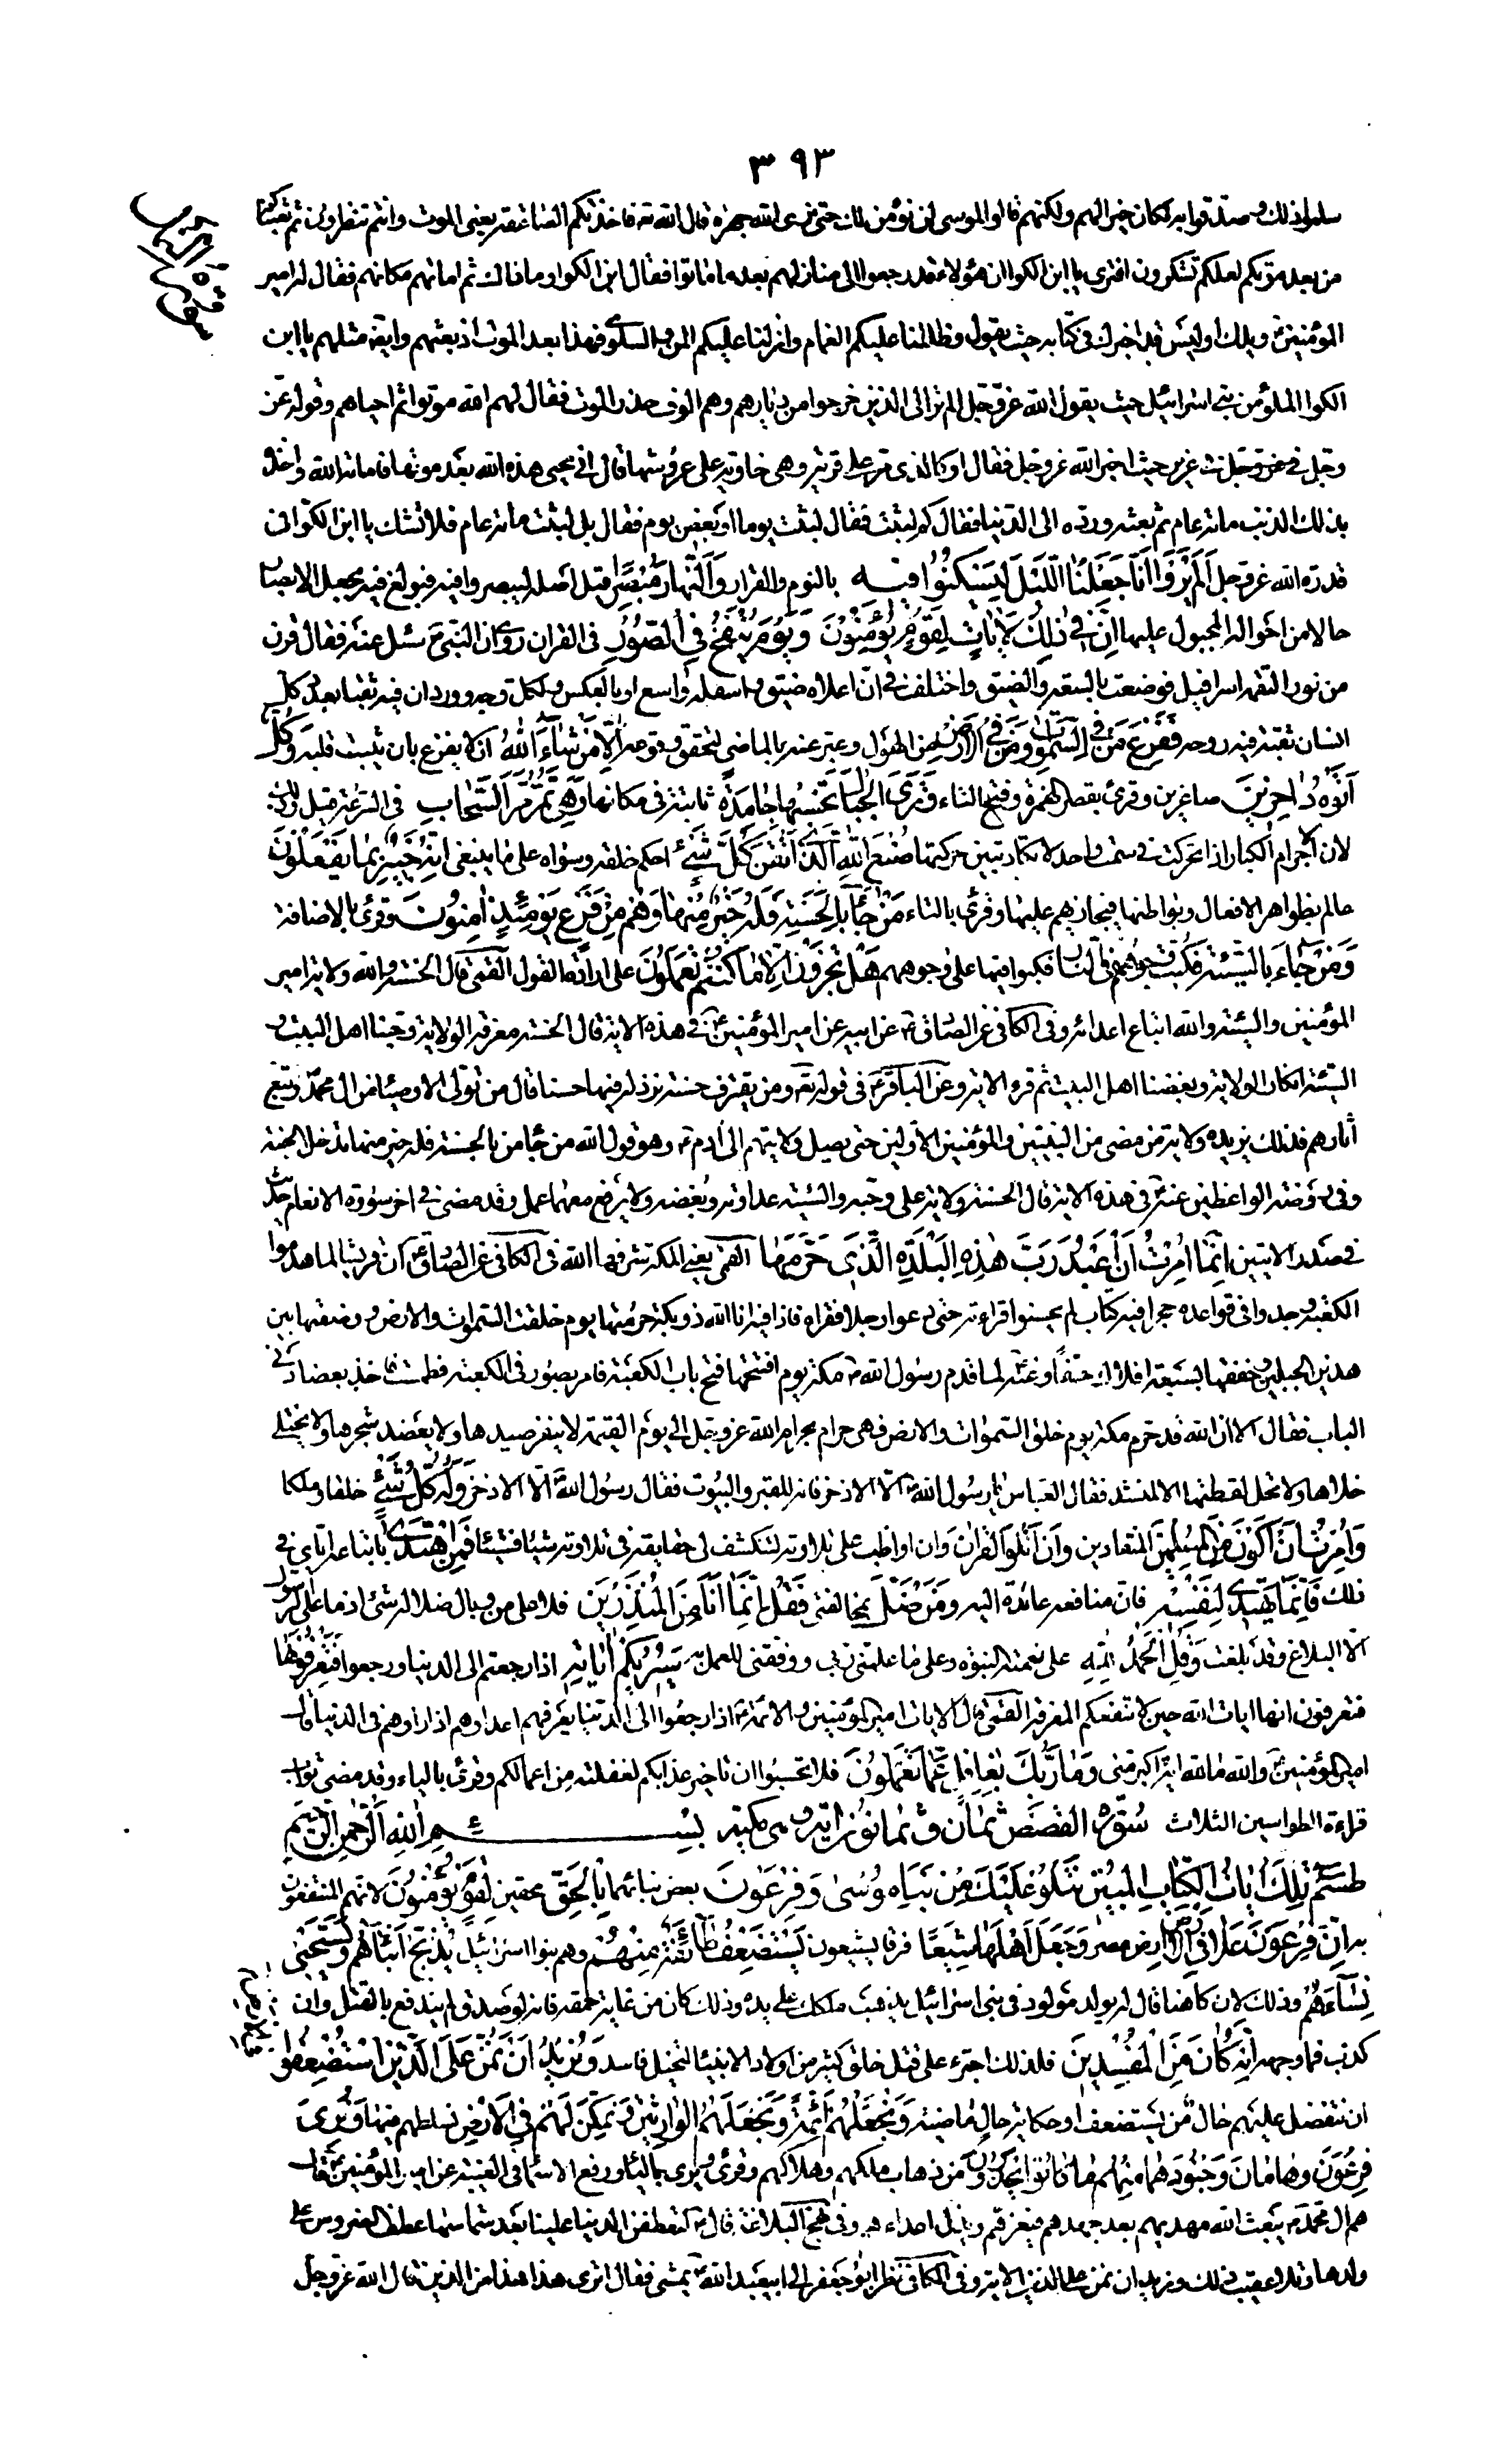 ٣٩٣
سلموا ذلك وصدقوا به لكان خيرا لهم ولكنهم قالوا لموسى لن نؤمن لك حتى نرى الله جهرة قال الله تع فاخذتكم الصاعقة يعنى الموت وانتم تنظرون ثم بعثناكم
من بعد موتكم لعلكم تشكرون افترى يا ابن الكوا ان هؤلاء قد رجعوا الى منازلهم بعد ما ماتوا فقال ابن الكوا وما ذاك ثم اماتهم مكانهم فقال له امير
المؤمنين ويلك اوليس قد اخبرك فى كتابه حيث يقول وظللنا عليكم الغمام وانزلنا عليكم المن والسلوى فهذا بعد الموت اذ بعثهم وايضا مثلهم يا ابن
الكوا الملؤ من بنى اسرائيل حيث يقول الله عز وجل الم تر الى الذين خرجوا من ديارهم وهم الوف حذر الموت فقال لهم الله موتوا ثم احياهم وقوله عز
وجل فى عزير حيث اخبر الله عز وجل فقال او كالذى مر على قرية وهى خاوية على عروشها قال انى يحيى هذه الله بعد موتها فاماته الله واخذه
بذلك الذنب مائة عام ثم بعثه ورده الى الدنيا فقال كم لبثت فقال لبثت يوما او بعض يوم فقال بل لبثت مائة عام فلا تشك يا ابن الكوا فى
قدرة الله عز وجل اَلَمْ يَرَوْا اَنَّا جَعَلْنَا اللَّيْلَ لِيَسْكُنُوا فِيهِ بالنوم والقرار وَالنَّهَارَ مُبْصِرًا قيل اصله ليبصروا فيه فبولغ فيه بجعل الابصار
حالا من احواله المجبول عليها اِنَّ فِى ذٰلِكَ لَاٰيَاتٍ لِقَوْمٍ يُؤْمِنُونَ وَيَوْمَ يُنْفَخُ فِى الصُّورِ فى القران روى ان النبى ص سئل عنه فقال قرن
من نور التقمه اسرافيل فوضعت بالسعة والضيق واختلف فى ان اعلاه ضيق واسفله واسع او بالعكس ولكل وجه وورد ان فيه ثقبا بعدد كل
انسان ثقبة فيه روحه فَفَزِعَ مَنْ فِى السَّمٰوَاتِ وَمَنْ فِى الْاَرْضِ من الهول وعبر عنه بالماضى لتحقق وقوعه اِلَّا مَنْ شَاءَ اللّٰهُ ان لا يفزع بان يثبت قلبه وَكُلٌّ
اَتَوْهُ دَاخِرِينَ صاغرين وقرئ بقصر الهمزة وفتح التاء وَتَرَى الْجِبَالَ تَحْسَبُهَا جَامِدَةً ثابتة فى مكانها وَهِىَ تَمُرُّ مَرَّ السَّحَابِ فى السرعة قيل وذلك
لان الاجرام الكبار اذا تحركت فى سمت واحد لا تكاد تتبين حركتها صُنْعَ اللّٰهِ الَّذِى اَتْقَنَ كُلَّ شَىْءٍ احكم خلقه وسواه على ما ينبغى اِنَّهُ خَبِيرٌ بِمَا يَفْعَلُونَ
عالم بظواهر الافعال وبواطنها فيجازيهم عليها وقرئ بالتاء مَنْ جَاءَ بِالْحَسَنَةِ فَلَهُ خَيْرٌ مِنْهَا وَهُمْ مِنْ فَزَعٍ يَوْمَئِذٍ اٰمِنُونَ وقرئ بالاضافة
وَمَنْ جَاءَ بِالسَّيِّئَةِ فَكُبَّتْ وُجُوهُهُمْ فِى النَّارِ فكبوا فيها على وجوههم هَلْ تُجْزَوْنَ اِلَّا مَا كُنْتُمْ تَعْمَلُونَ على ارادة القول القمى قال الحسنة والله ولاية امير
المؤمنين والسيئة والله اتباع اعدائه وفى الكافى عن الصادق ع عن ابيه عن امير المؤمنين ع فى هذه الاية قال الحسنة معرفة الولاية وحبنا اهل البيت و
السيئة انكار الولاية وبغضنا اهل البيت ثم قرء الاية وعن الباقر ع فى قوله تع ومن يقترف حسنة نزد له فيها حسنا قال من تولى الاوصياء من ال محمد واتبع
اثارهم فذلك نزيده ولاية من مضى من النبيين والمؤمنين الاولين حتى يصل ولايتهم الى ادم ع وهو قول الله من جاء بالحسنة فله خير منها تدخله الجنة
وفى روضة الواعظين عنه ع فى هذه الاية قال الحسنة ولاية على وحبه والسيئة عداوته وبغضه ولا يرفع معها عمل وقد مضى فى اخر سورة الانعام حديث
فى صدد الايتين اِنَّمَا اُمِرْتُ اَنْ اَعْبُدَ رَبَّ هٰذِهِ الْبَلْدَةِ الَّذِى حَرَّمَهَا القمى يعنى المكة شرفها الله فى الكافى عن الصادق ع ان قريشا لما هدموا
الكعبة وجدوا فى قواعده حجرا فيه كتاب لم يحسنوا قراءته حتى دعوا رجلا فقراه فاذا فيه انا الله ذو بكة حرمتها يوم خلقت السموات والارض ووضعتها بين
هذين الجبلين وحففتها بسبعة املاك حفا وعنه ع لما قدم رسول الله ص مكة يوم افتتحها فتح باب الكعبة فامر بصور فى الكعبة فطمست فاخذ بعضادتى
الباب فقال الا ان الله قد حرم مكة يوم خلق السموات والارض فهى حرام بحرام الله عز وجل الى يوم القيمة لا ينفر صيدها ولا يعضد شجرها ولا يختلى
خلاها ولا تحل لقطتها الا لمنشد فقال العباس يا رسول الله الا الاذخر فانه للقبر والبيوت فقال رسول الله ص الا الاذخر وَلَهُ كُلُّ شَىْءٍ خلقا وملكا
وَاُمِرْتُ اَنْ اَكُونَ مِنَ الْمُسْلِمِينَ المنقادين وَاَنْ اَتْلُوَ الْقُرْاٰنَ وان اواظب على تلاوته لتنكشف لى حقايقه فى تلاوته شيئا فشيئا فَمَنِ اهْتَدٰى باتباعه اياى فى
ذلك فَاِنَّمَا يَهْتَدِى لِنَفْسِهِ فان منافعه عائدة اليه وَمَنْ ضَلَّ بمخالفتى فَقُلْ اِنَّمَا اَنَا مِنَ الْمُنْذِرِينَ فلا على من وبال ضلاله شئ اذ ما على الرسول
الا البلاغ وقد بلغت وَقُلِ الْحَمْدُ لِلّٰهِ على نعمة النبوة وعلى ما علمنى ربى ووفقنى للعمل به سَيُرِيكُمْ اٰيَاتِهِ اذا رجعتم الى الدنيا ورجعوا فَتَعْرِفُونَهَا
فتعرفون انها ايات الله حين لا تنفعكم المعرفة القمى قال الايات امير المؤمنين والائمة ع اذا رجعوا الى الدنيا يعرفهم اعداوهم اذا راوهم فى الدنيا قال
امير المؤمنين ع والله ما لله اية اكبر منى وَمَا رَبُّكَ بِغَافِلٍ عَمَّا تَعْمَلُونَ فلا تحسبوا ان تاخير عذابكم لغفلته من اعمالكم وقرئ بالياء وقد مضى ثواب
قراءة الطواسين الثلاث سُورَةُ القصص ثمان وثمانون اية وهى مكية بِسْمِ اللّٰهِ الرَّحْمٰنِ الرَّحِيمِ
طسم تِلْكَ اٰيَاتُ الْكِتَابِ الْمُبِينِ نَتْلُو عَلَيْكَ مِنْ نَبَاِ مُوسٰى وَفِرْعَوْنَ بعض نبائهما بِالْحَقِّ محقين لِقَوْمٍ يُؤْمِنُونَ لانهم المنتفعون
به اِنَّ فِرْعَوْنَ عَلَا فِى الْاَرْضِ ارض مصر وَجَعَلَ اَهْلَهَا شِيَعًا فرقا يشيعون يَسْتَضْعِفُ طَائِفَةً مِنْهُمْ وهم بنوا اسرائيل يُذَبِّحُ اَبْنَاءَهُمْ وَيَسْتَحْيِى
نِسَاءَهُمْ وذلك لان كاهنا قال له يولد مولود فى بنى اسرائيل يذهب ملكك على يده وذلك كان من غاية حمقه فانه لو صدق لم يندفع بالقتل وان
كذب فما وجهه اِنَّهُ كَانَ مِنَ الْمُفْسِدِينَ فلذلك اجترء على قتل خلق كثير من اولاد الانبياء لتخيل فاسد وَنُرِيدُ اَنْ نَمُنَّ عَلَى الَّذِينَ اسْتُضْعِفُوا
ان نتفضل عليهم حال من يستضعف او حكاية حال ماضية وَنَجْعَلَهُمْ اَئِمَّةً وَنَجْعَلَهُمُ الْوَارِثِينَ وَنُمَكِّنَ لَهُمْ فِى الْاَرْضِ نسلطهم فيها وَنُرِىَ
فِرْعَوْنَ وَهَامَانَ وَجُنُودَهُمَا مِنْهُمْ مَا كَانُوا يَحْذَرُونَ من ذهاب ملكهم وهلاكهم وقرئ ويرى بالياء ورفع الاسماء فى الغيبة عن امير المؤمنين ع قال
هم ال محمد ص يبعث الله مهديهم بعد جهدهم فيعزهم ويذل اعداءهم وفى نهج البلاغة قال ع لتعطفن الدنيا علينا بعد شماسها عطف الضروس على
ولدها وتلا عقيب ذلك ونريد ان نمن على الذين الاية وفى الكافى نظر ابو جعفر الى ابى عبد الله ع يمشى فقال اترى هذا هذا من الذين قال الله عز وجل